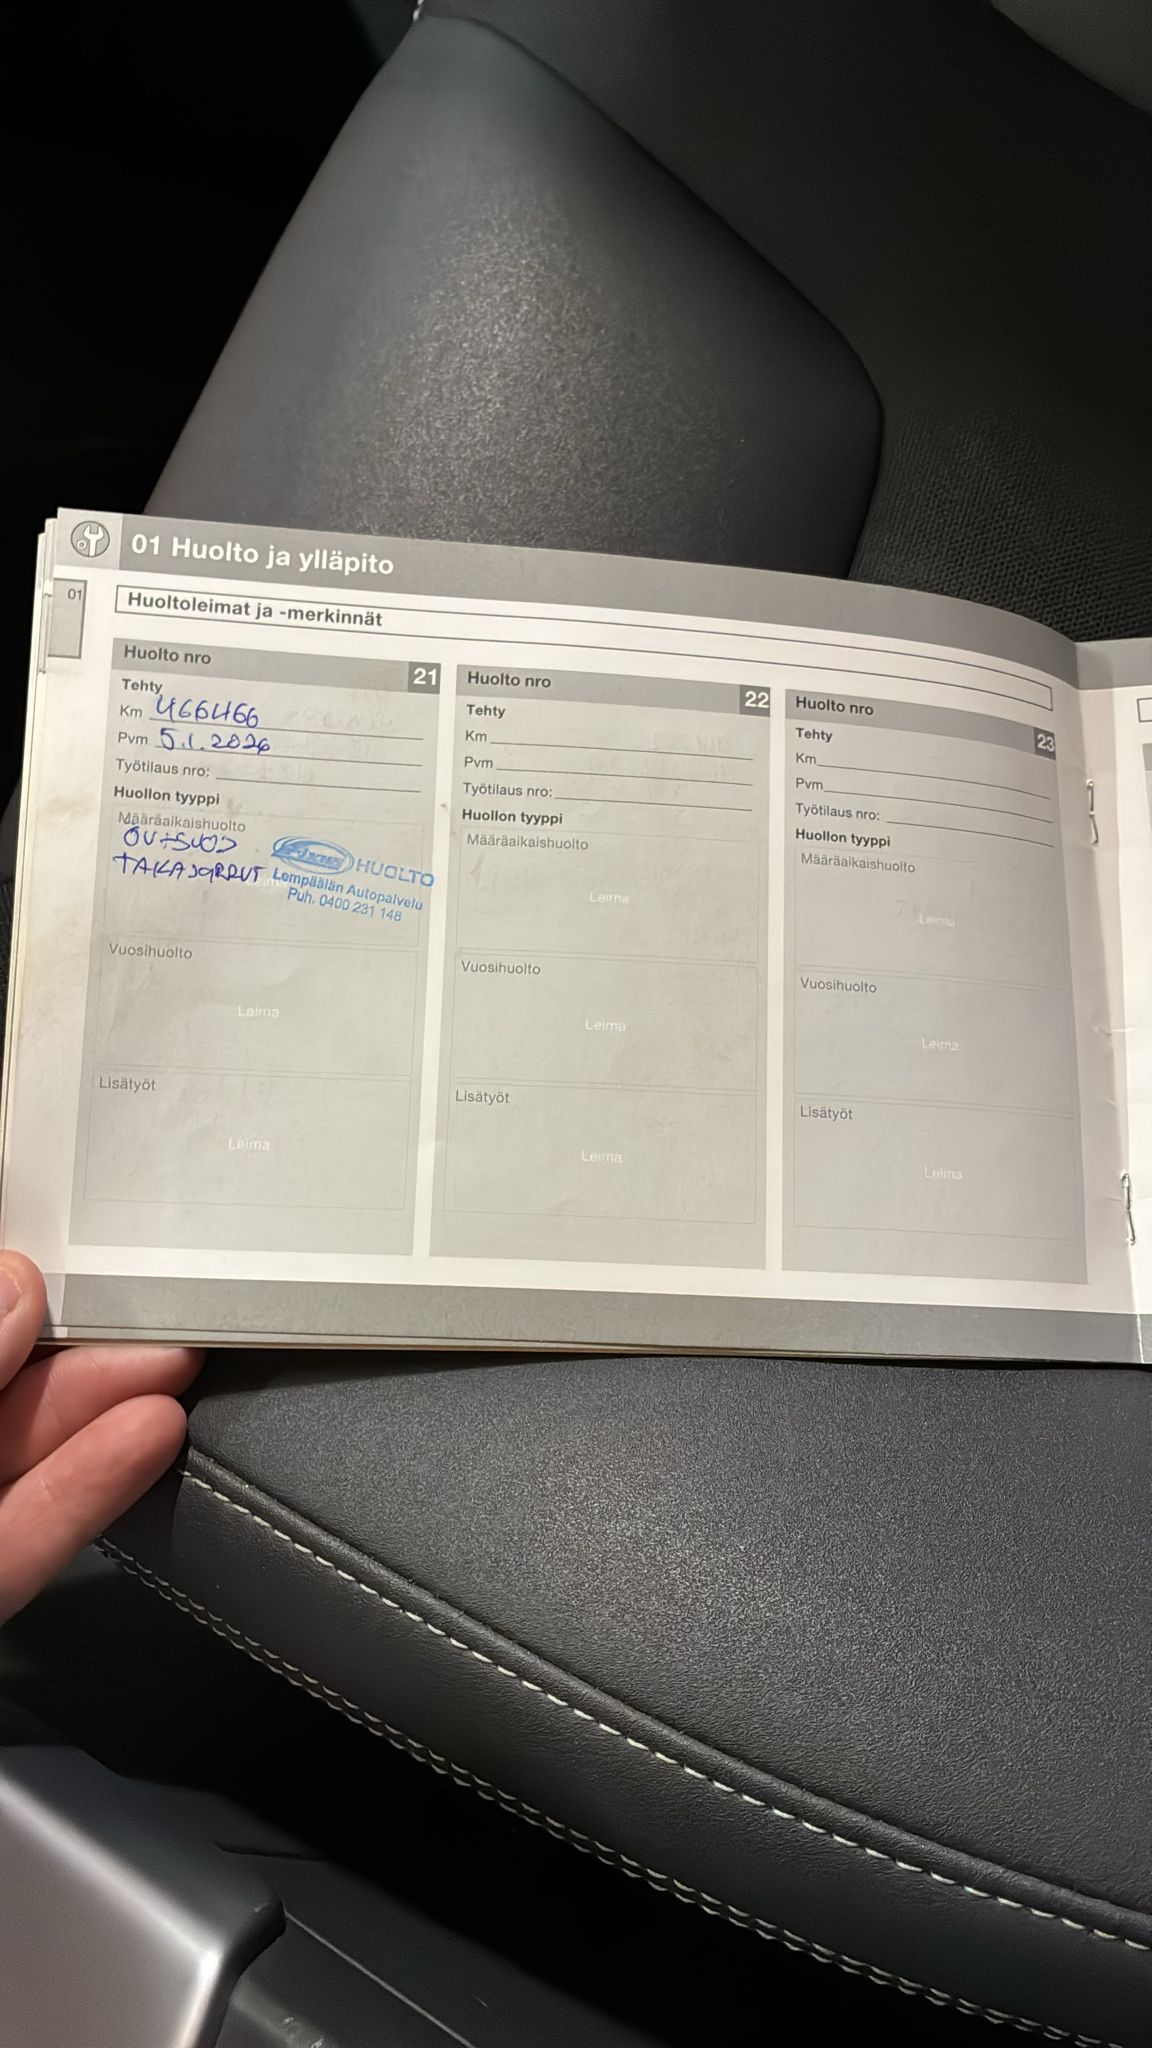 01 Huolto ja ylläpito
01
Huoltoleimat ja -merkinnät
Huolto nro 21
Tehty
Km 466466
Pvm 5.1.2026
Työtilaus nro:
Huollon tyyppi
Määräaikaishuolto
ÖV+SUOD
TAKAJARRUT
HUOLTO
Lempäälän Autopalvelu
Puh. 0400 231 148
Leima
Vuosihuolto
Leima
Lisätyöt
Leima
Huolto nro 22
Tehty
Km
Pvm
Työtilaus nro:
Huollon tyyppi
Määräaikaishuolto
Leima
Vuosihuolto
Leima
Lisätyöt
Leima
Huolto nro 23
Tehty
Km
Pvm
Työtilaus nro:
Huollon tyyppi
Määräaikaishuolto
Leima
Vuosihuolto
Leima
Lisätyöt
Leima